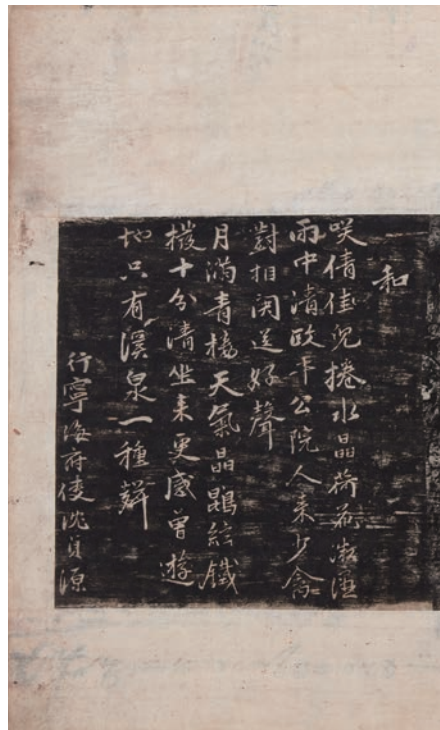 和
咲倩佳兒捲水晶荷
雨中清政平公院人来少禽
對相関送好聲
月滿青樓天氣晶鵾絃鐵
撥十分清坐来更感曾遊
地只有溪泉一種聲
行寧海府使沈源